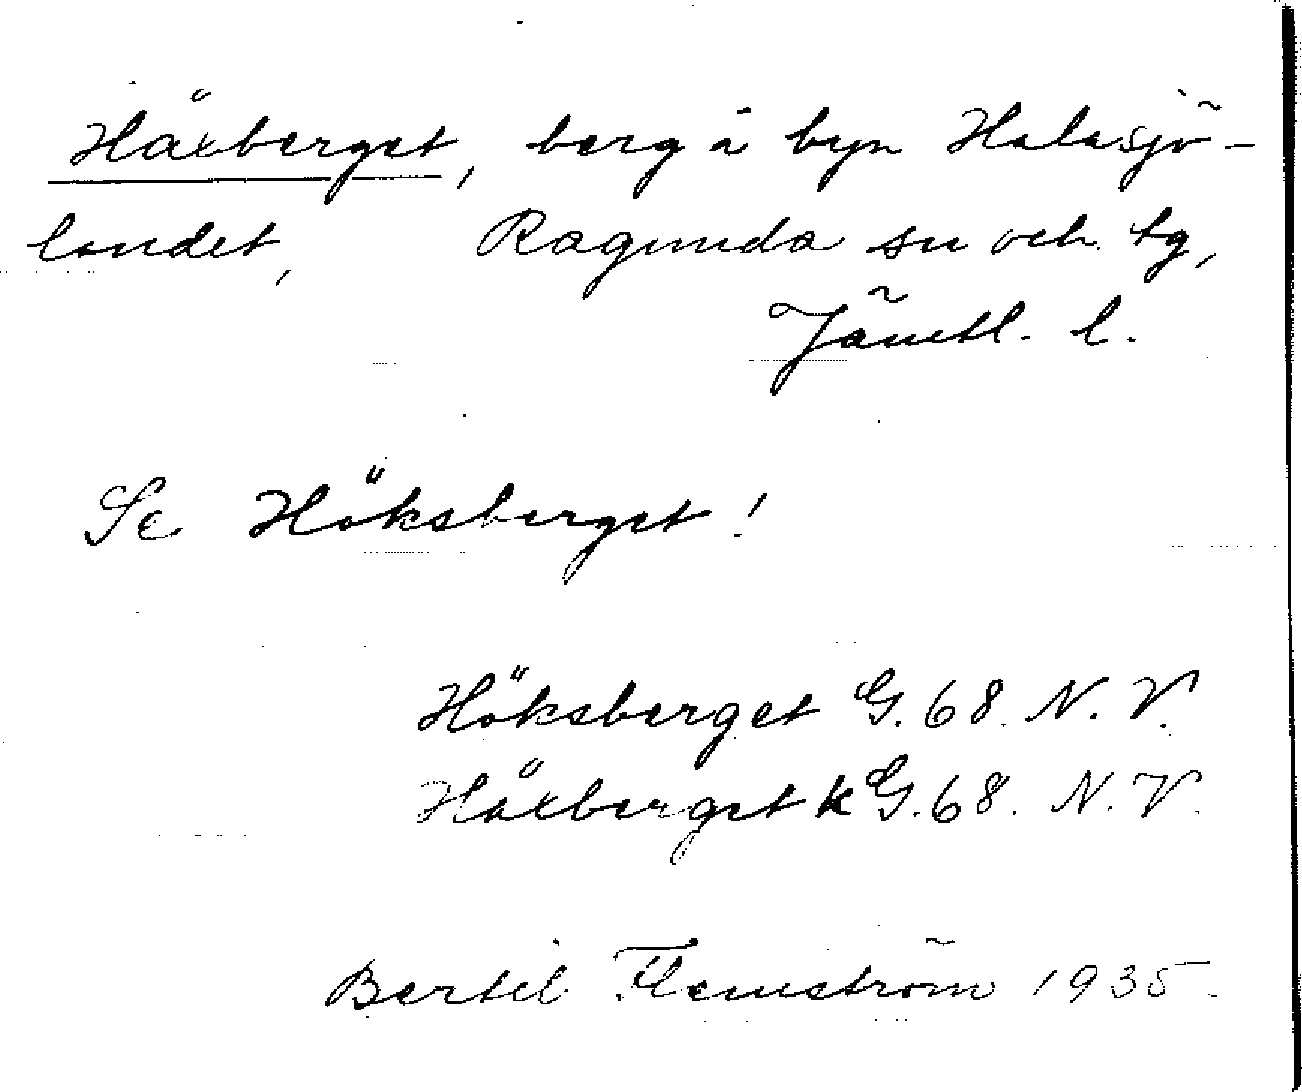 Håxberget, berg å byn Halasjö-
landet, Ragunda sn och tg,
Jämtl. l.
Se Höksberget!
Höksberget G. 68. N. V.
Håxberget k G. 68. N. V.
Bertil Flemström 1935.